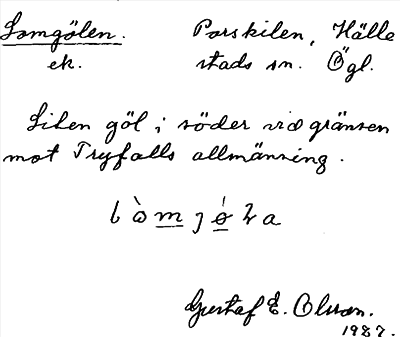 Lomgölen. Porskilen, Hälle
ek. stads sn. Ögl.
Liten göl i söder vid gränsen
mot Tryfalls allmänning.
Gustaf E. Olsson.
1987.